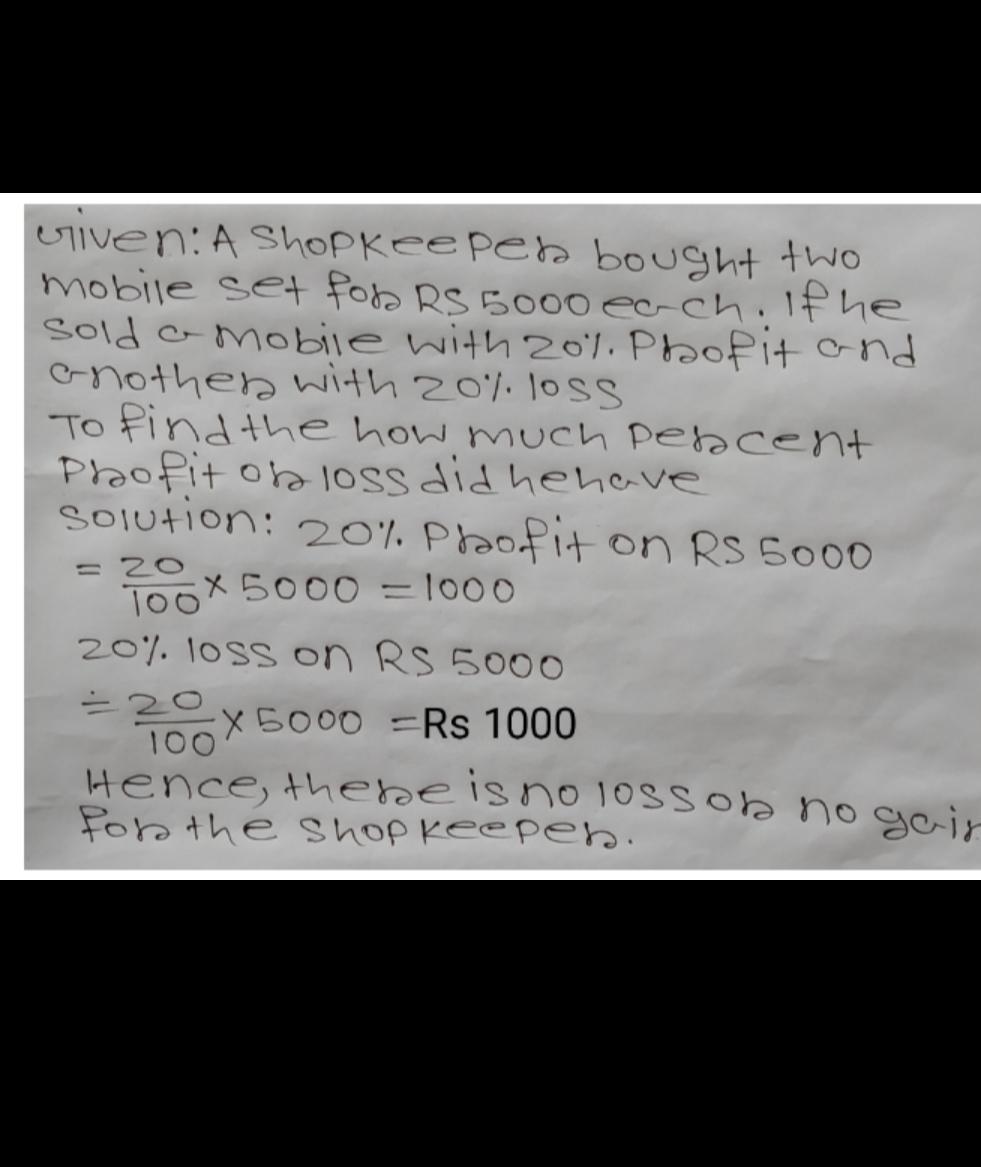 Given: A Shopkeeper bought two
mobile set for RS 5000 each. If he
sold a mobile with 20% Profit and
another with 20% loss
To find the how much percent
Profit or loss did he have
Solution: 20% Profit on RS 5000
= 20/100 × 5000 = 1000
20% loss on RS 5000
= 20/100 × 5000 = Rs 1000
Hence, there is no loss or no gain
for the shopkeeper.